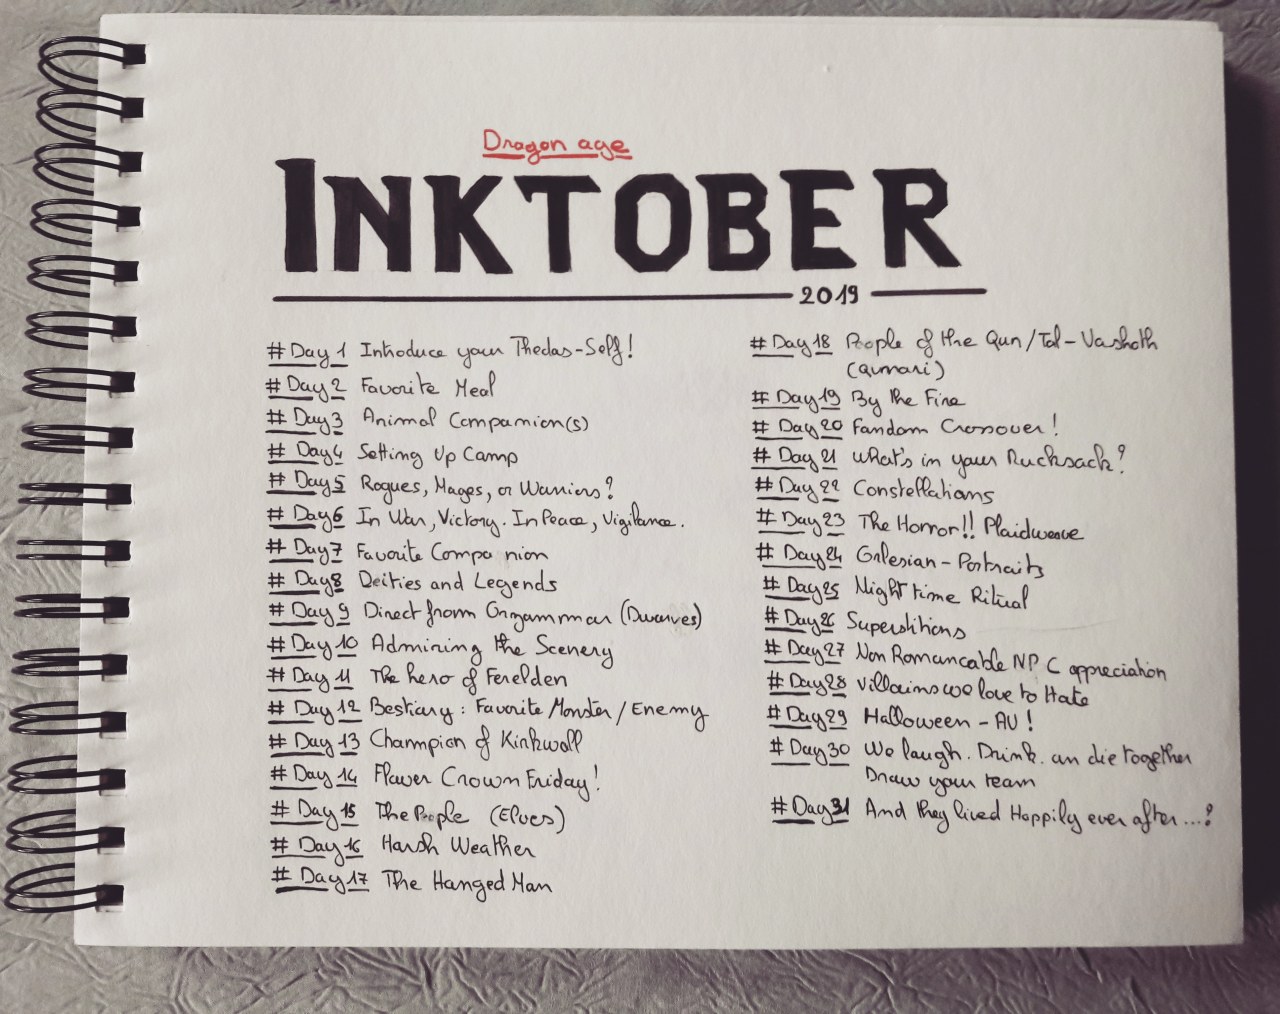 Dragon age
INKTOBER
2019
# Day 1 Introduce your Thedas-Self!
# Day 2 Favorite Meal
# Day 3 Animal Companion(s)
# Day 4 Setting Up Camp
# Day 5 Rogues, Mages, or Warriors?
# Day 6 In War, Victory. In Peace, Vigilance.
# Day 7 Favorite Companion
# Day 8 Deities and Legends
# Day 9 Direct from Orzammar (Dwarves)
# Day 10 Admiring the Scenery
# Day 11 The hero of Ferelden
# Day 12 Bestiary: Favorite Monster/Enemy
# Day 13 Champion of Kirkwall
# Day 14 Flower Crown Friday!
# Day 15 The People (Elves)
# Day 16 Harsh Weather
# Day 17 The Hanged Man
# Day 18 People of the Qun/Tal-Vashoth
(qunari)
# Day 19 By the Fire
# Day 20 Fandom Crossover!
# Day 21 What's in your Rucksack?
# Day 22 Constellations
# Day 23 The Horror!! Plaidweave
# Day 24 Orlesian-Portraits
# Day 25 Night time Ritual
# Day 26 Superstitions
# Day 27 Non Romancable NPC appreciation
# Day 28 Villains we love to Hate
# Day 29 Halloween-AU!
# Day 30 We laugh. Drink. an die together
Draw your team
# Day 31 And they lived Happily ever after...?